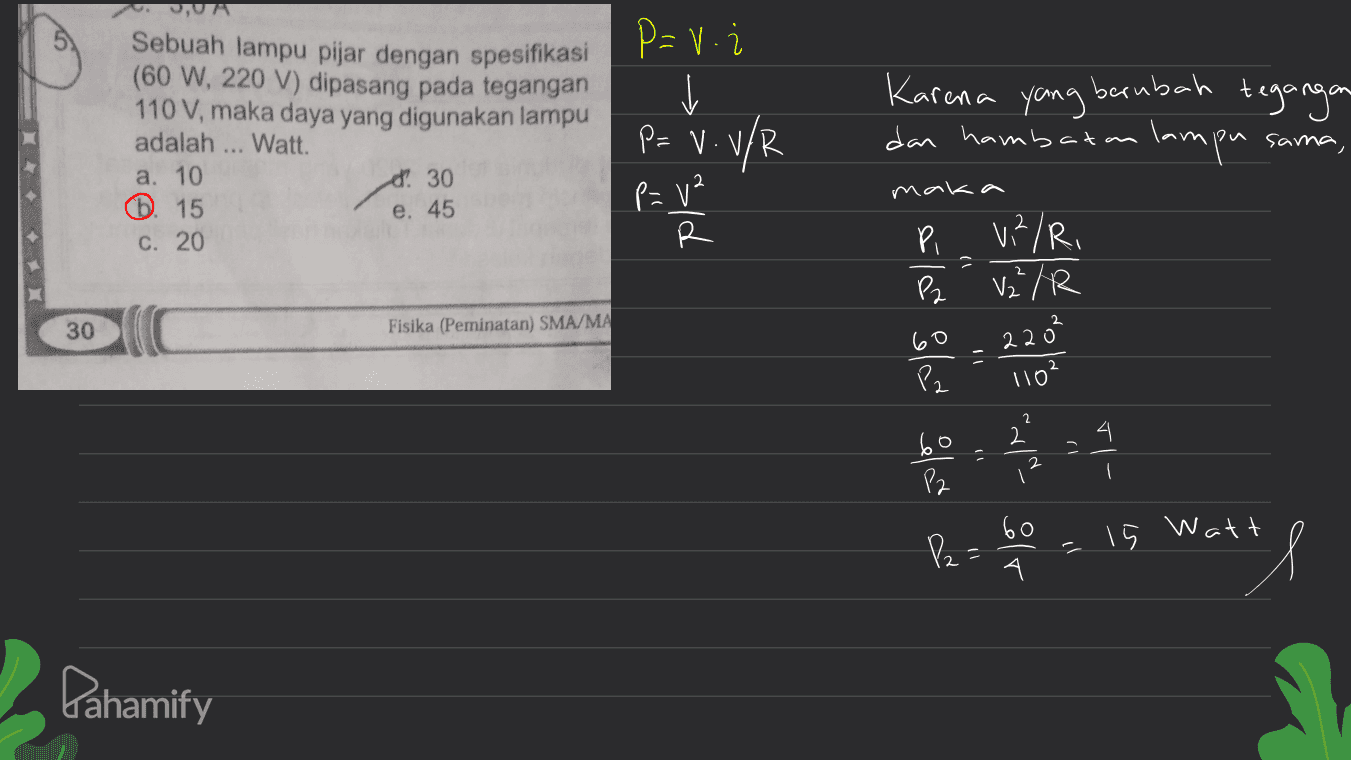 5.
Sebuah lampu pijar dengan spesifikasi
(60 W, 220 V) dipasang pada tegangan
110 V, maka daya yang digunakan lampu
adalah ... Watt.
a. 10
b. 15
c. 20
d. 30
e. 45
30
Fisika (Peminatan) SMA/MA
P = V . i
↓
P = V . V/R
P = V²/R
Karena yang berubah tegangan
dan hambatan lampu sama,
maka
P₁/P₂ = V₁²/R₁ / V₂²/R
60/P₂ = 220²/110²
60/P₂ = 2²/1² = 4/1
P₂ = 60/4 = 15 Watt
Pahamify